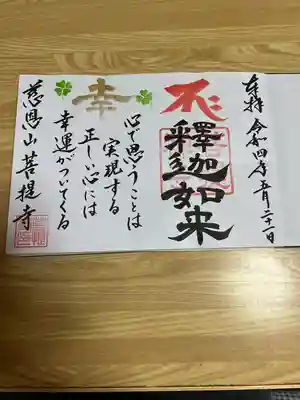 奉拝 令和四年五月二十一日
釋迦如来
幸
心で思うことは
実現する
正しい心には
幸運がついてくる
慈恩山菩提寺